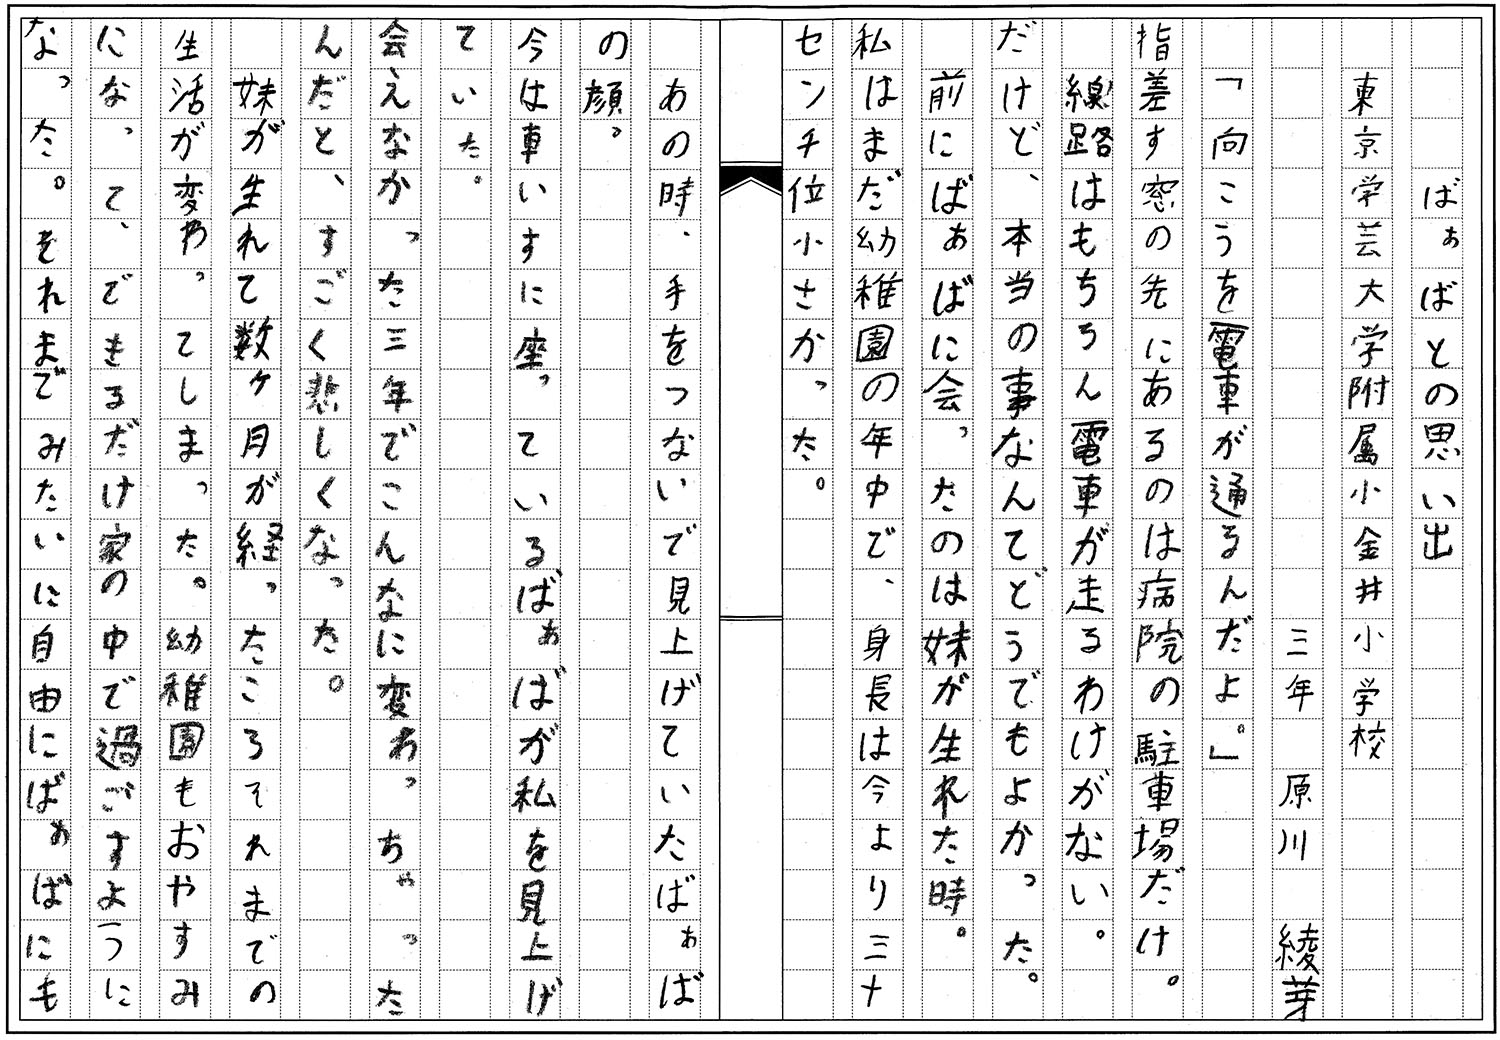 ばぁばとの思い出
東京学芸大学附属小金井小学校
三年 原川 綾芽
「向こうを電車が通るんだよ。」
指差す窓の先にあるのは病院の駐車場だけ。
線路はもちろん電車が走るわけがない。
だけど、本当の事なんてどうでもよかった。
前にばぁばに会ったのは妹が生れた時。
私はまだ幼稚園の年中で、身長は今より三十
センチ位小さかった。
あの時、手をつないで見上げていたばぁば
の顔。
今は車いすに座っているばぁばが私を見上げ
ていた。
会えなかった三年でこんなに変わっちゃった
んだと、すごく悲しくなった。
妹が生れて数ヶ月が経ったころそれまでの
生活が変わってしまった。幼稚園もおやすみ
になって、できるだけ家の中で過ごすように
なった。それまでみたいに自由にばぁばにも